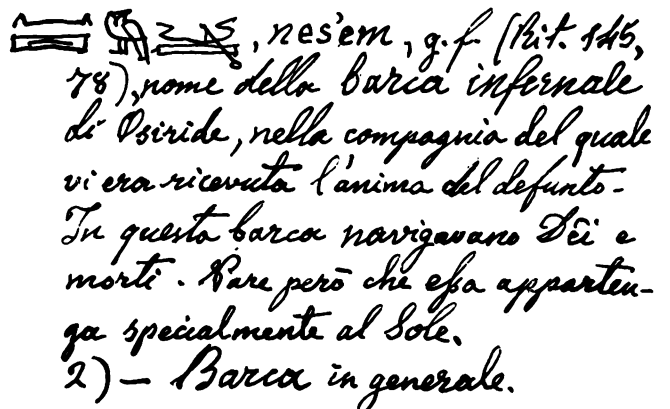 , nes'em, g.f. (Rit. 145,
78), nome della barca infernale
di Osiride, nella compagnia del quale
vi era ricevuta l'anima del defunto -
In questa barca navigavano Dêi e
morti. Pare però che essa apparten-
ga specialmente al Sole.
2) — Barca in generale.